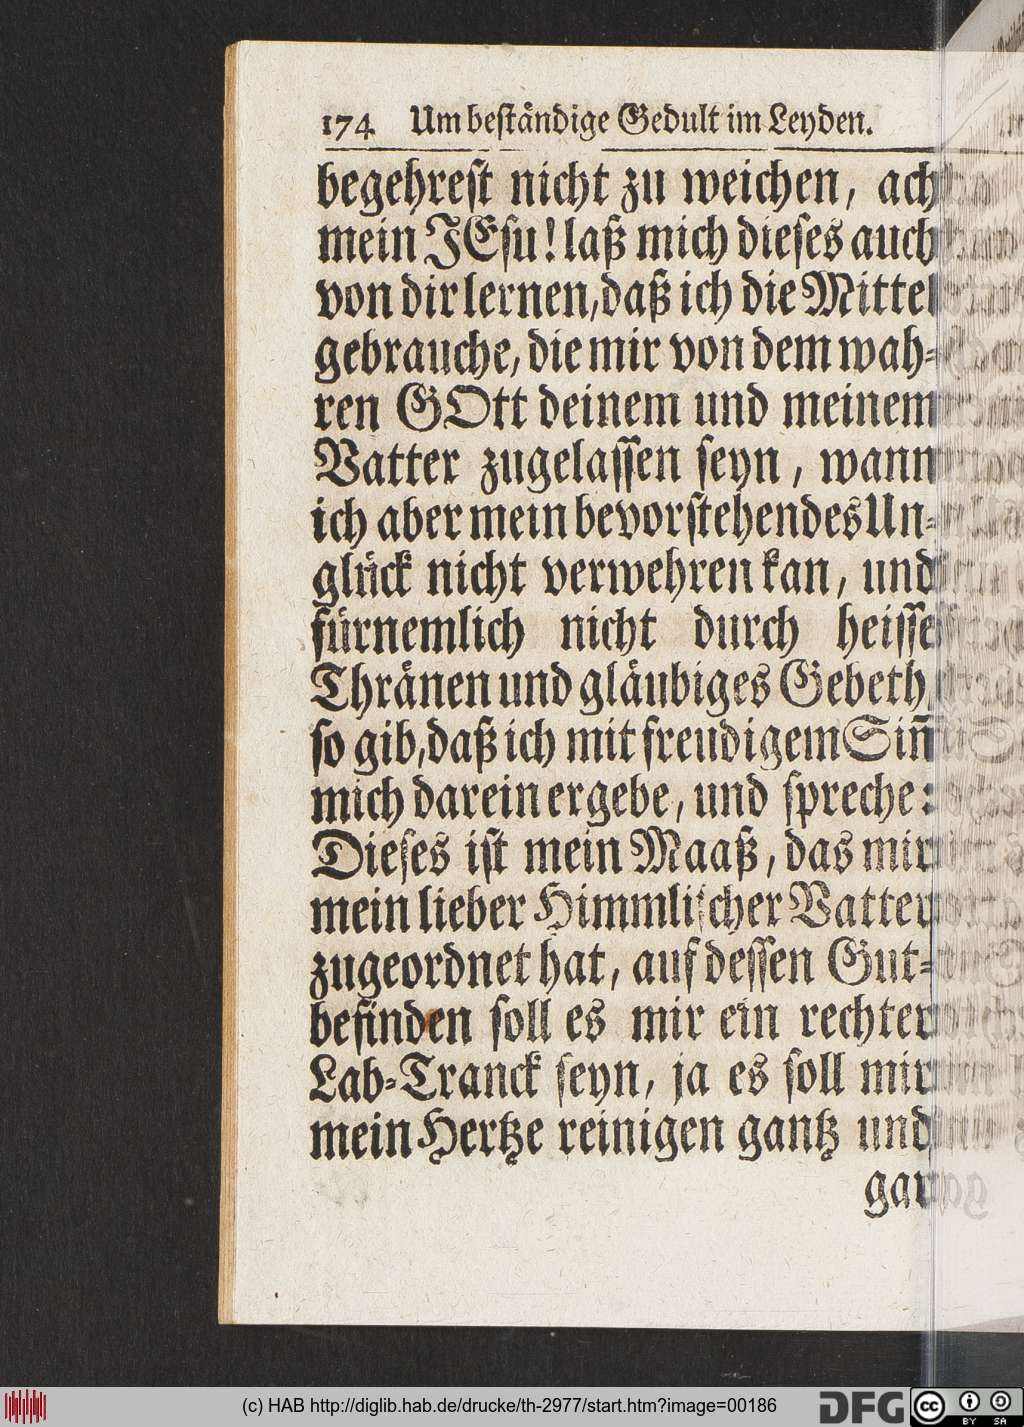 174 Um beständige Gedult im Leyden.
begehrest nicht zu weichen, ach
mein JEsu! laß mich dieses auch
von dir lernen, daß ich die Mittel
gebrauche, die mir von dem wah-
ren GOtt deinem und meinem
Vatter zugelassen seyn, wann
ich aber mein bevorstehendes Un-
glück nicht verwehren kan, und
fürnemlich nicht durch heisse
Thränen und gläubiges Gebeth,
so gib, daß ich mit freudigem Siñ
mich darein ergebe, und spreche:
Dieses ist mein Maaß, das mir
mein lieber Himmlischer Vatter
zugeordnet hat, auf dessen Gut-
befinden soll es mir ein rechter
Lab-Tranck seyn, ja es soll mir
mein Hertze reinigen gantz und
gar
(c) HAB http://diglib.hab.de/drucke/th-2977/start.htm?image=00186
DFG
cc BY SA